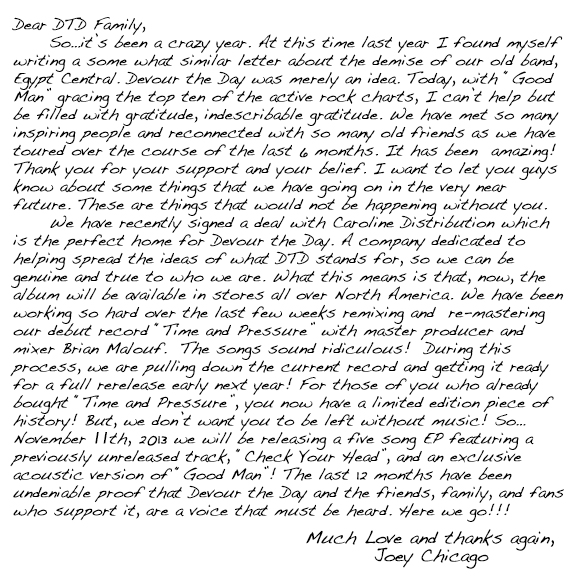 Dear DTD Family,
So...it's been a crazy year. At this time last year I found myself
writing a some what similar letter about the demise of our old band,
Egypt Central. Devour the Day was merely an idea. Today, with "Good
Man" gracing the top ten of the active rock charts, I can't help but
be filled with gratitude, indescribable gratitude. We have met so many
inspiring people and reconnected with so many old friends as we have
toured over the course of the last 6 months. It has been amazing!
Thank you for your support and your belief. I want to let you guys
know about some things that we have going on in the very near
future. These are things that would not be happening without you.
We have recently signed a deal with Caroline Distribution which
is the perfect home for Devour the Day. A company dedicated to
helping spread the ideas of what DTD stands for, so we can be
genuine and true to who we are. What this means is that, now, the
album will be available in stores all over North America. We have been
working so hard over the last few weeks remixing and re-mastering
our debut record "Time and Pressure" with master producer and
mixer Brian Malouf. The songs sound ridiculous! During this
process, we are pulling down the current record and getting it ready
for a full rerelease early next year! For those of you who already
bought "Time and Pressure", you now have a limited edition piece of
history! But, we don't want you to be left without music! So...
November 11th, 2013 we will be releasing a five song EP featuring a
previously unreleased track, "Check Your Head", and an exclusive
acoustic version of "Good Man"! The last 12 months have been
undeniable proof that Devour the Day and the friends, family, and fans
who support it, are a voice that must be heard. Here we go!!!
Much Love and thanks again,
Joey Chicago